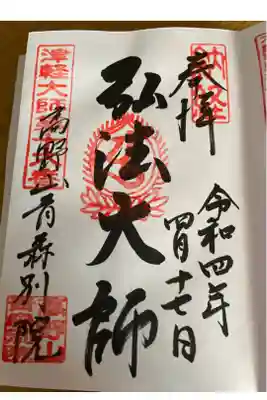 納経
奉拝
令和四年
四月十七日
弘法大師
高野山青森別院